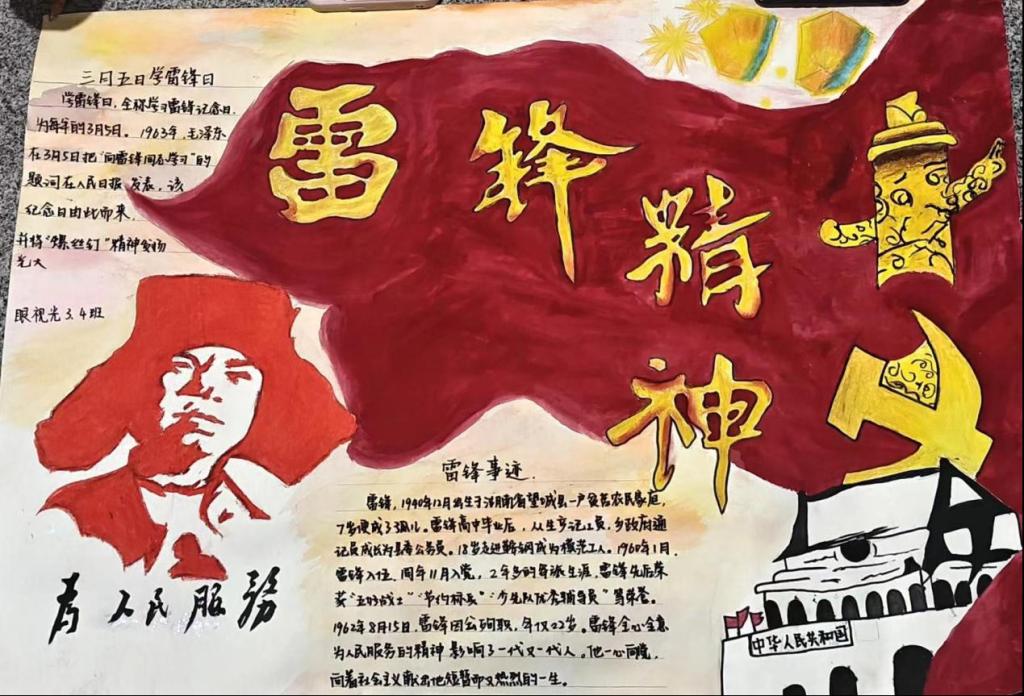 三月五日学雷锋日
学雷锋日，全称学习雷锋纪念日，
为每年的3月5日。1963年，毛泽东
在3月5日把“向雷锋同志学习”的
题词在人民日报发表，该
纪念日由此而来，
并将“螺丝钉”精神发扬
光大
眼视光3.4班
雷锋精神
为人民服务
雷锋事迹
雷锋，1940年12月出生于湖南省望城县一户贫苦农民家庭，
7岁便成了孤儿。雷锋高中毕业后，从生产记工员，乡政府通
记员成长为县委公务员。18岁走进鞍钢成为模范工人。1960年1月，
雷锋入伍，同年11月入党，2年多的军旅生涯，雷锋先后荣
获“五好战士”“节约标兵”“少先队优秀辅导员”等荣誉。
1962年8月15日，雷锋因公殉职，年仅22岁。雷锋全心全意
为人民服务的精神影响了一代又一代人。他一心向党，
向着社会主义献出他短暂却又热烈的一生。
中华人民共和国